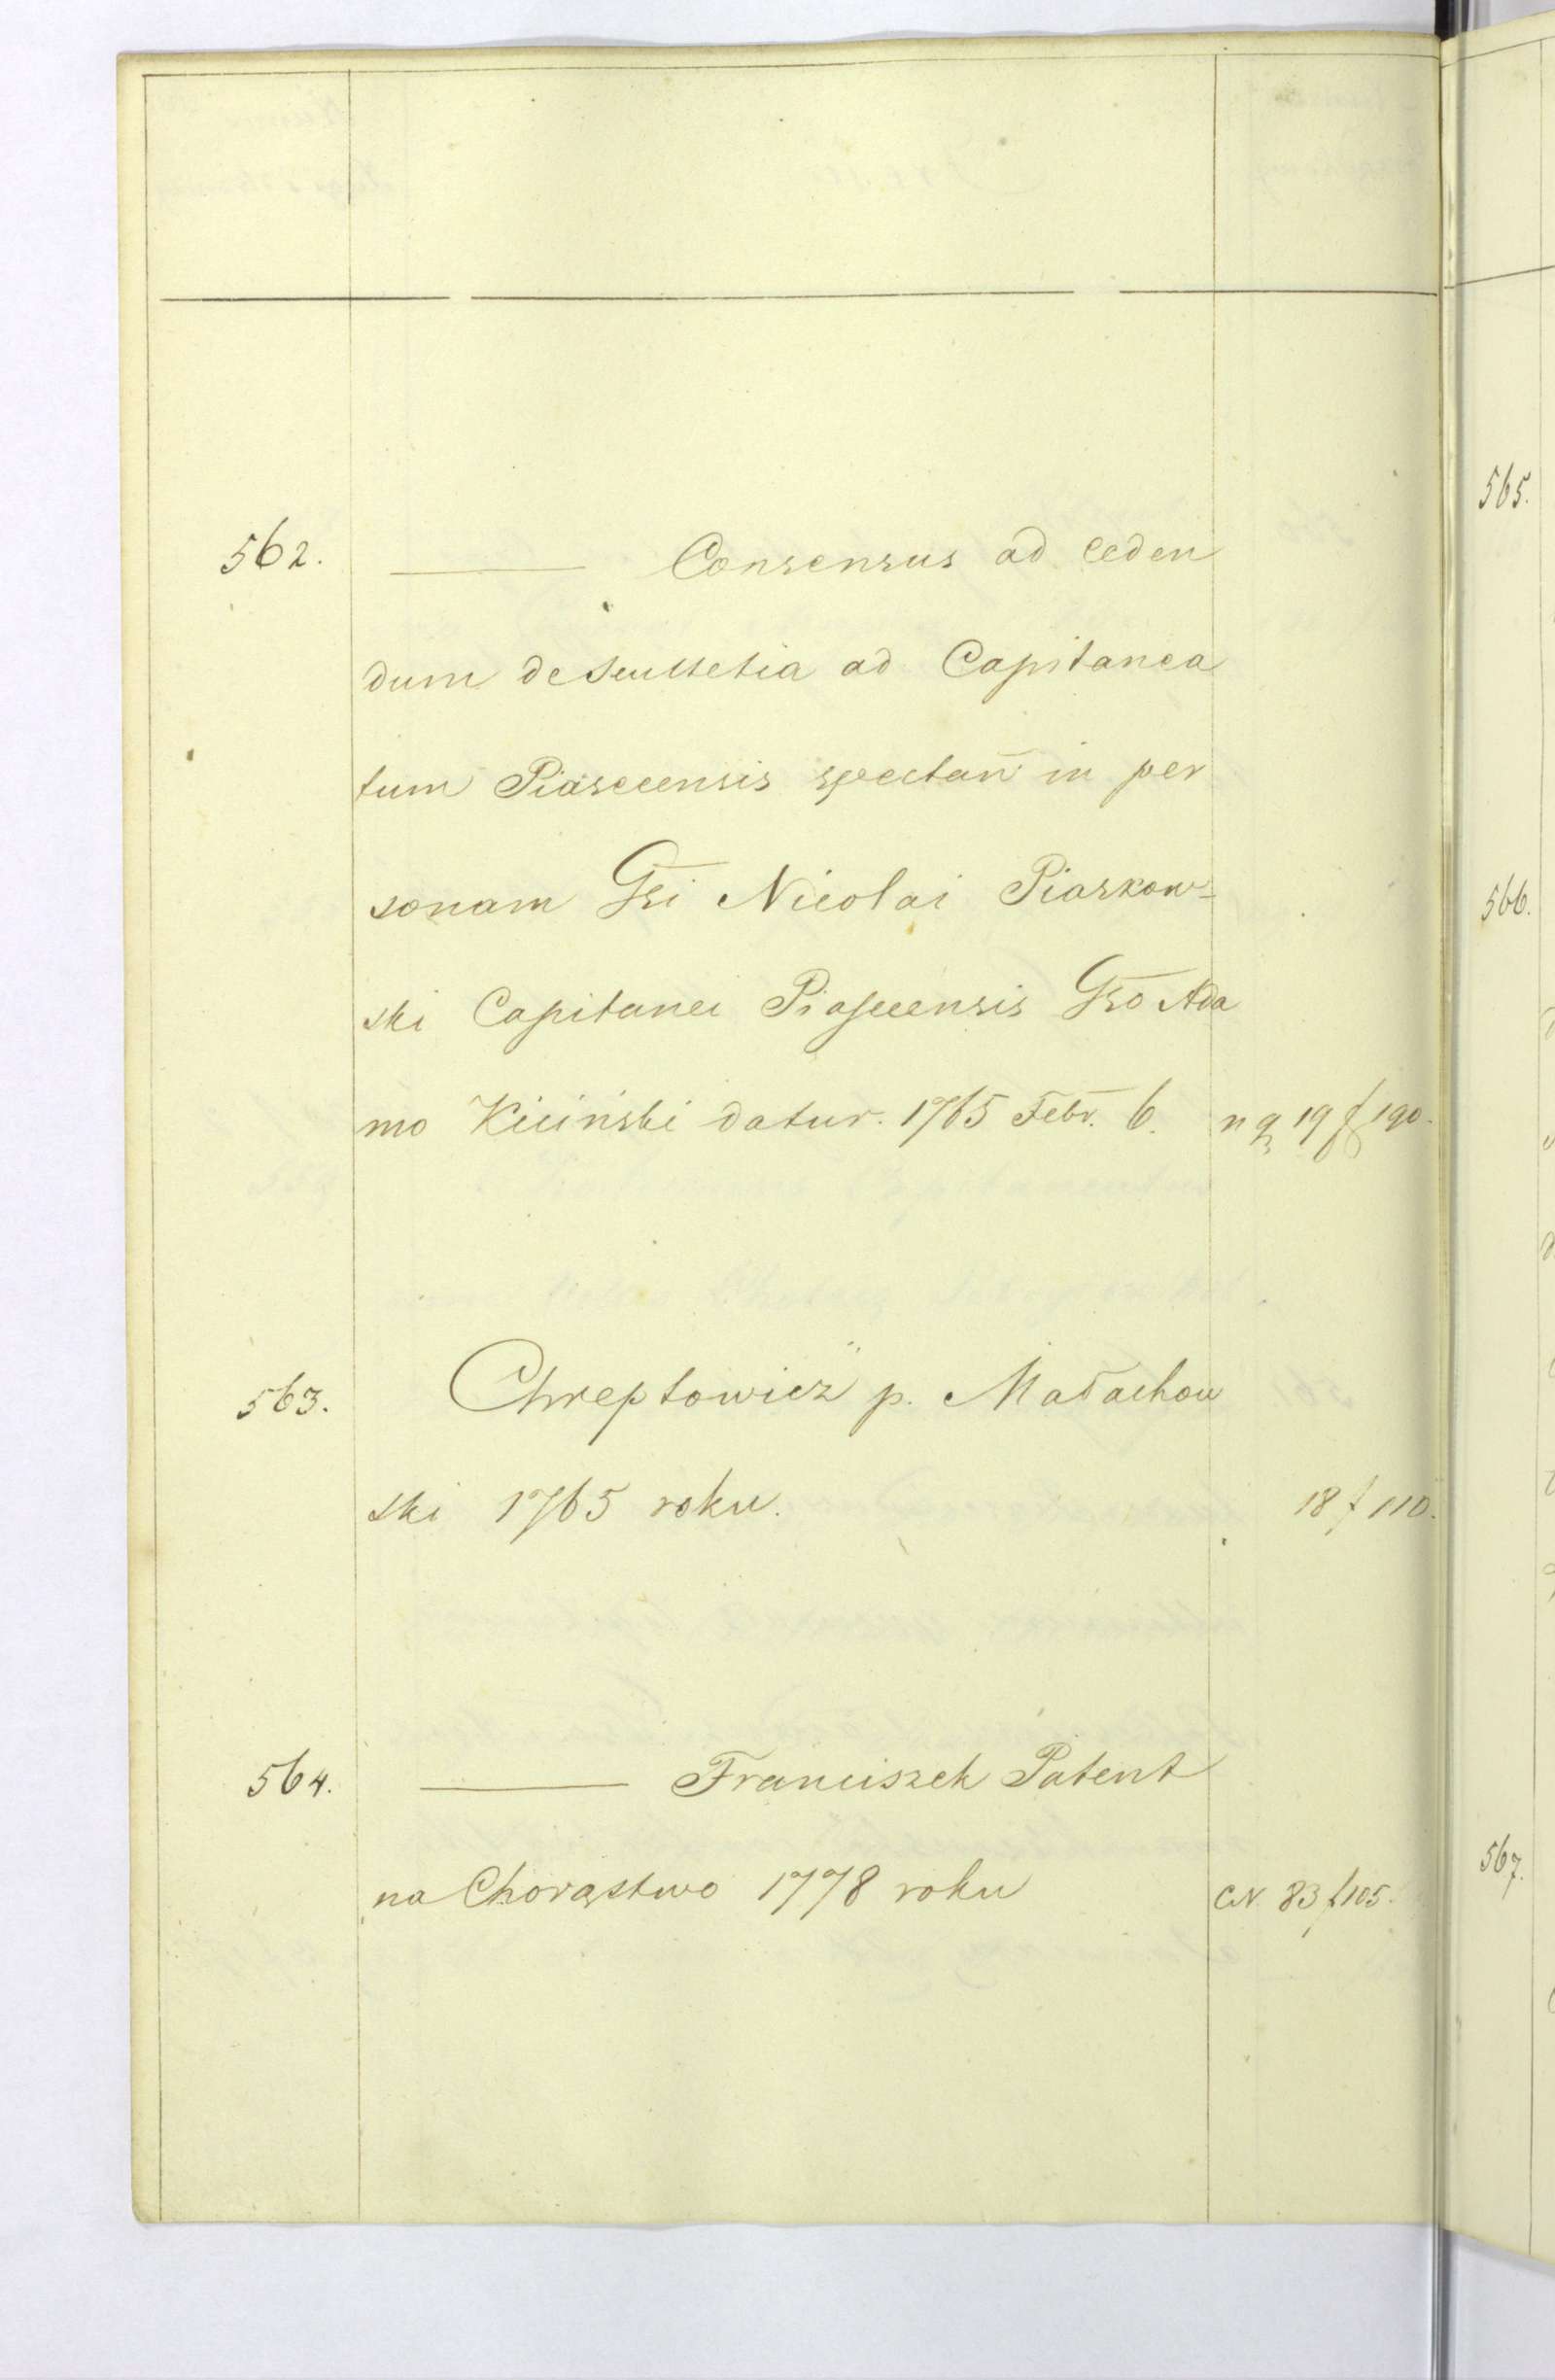 562. ——— Consensus ad ceden
dum de scultetia ad Capitanea
tum Piasecensis spectan̄ in per
sonam Gsi Nicolai Piaskow-
ski Capitanei Piasecensis Gso Ada
mo Kiciński datur. 1765 Febr. 6. 19 f 190.
563. Chreptowicz p. Małachow
ski 1765 roku. 18 f 110.
564. ——— Franciszek Patent
na Chorąstwo 1778 roku CN. 83 f 105.
565.
566.
567.